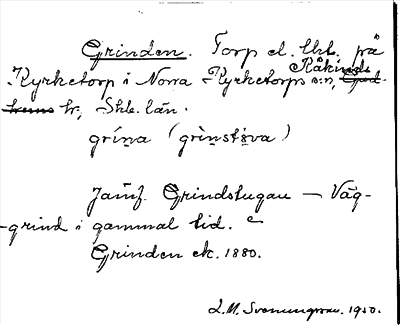 Grinden. Torp el. lht. på
Kyrketorp i Norra Kyrketorps s:n, Kåkinds
hr, Skb. län.
gri̱na (gri̱nstova)
Jämf. Grindstugan — Väg-
-grind i gammal tid.
Grinden ek. 1880.
L.M. Svenungsson. 1950.